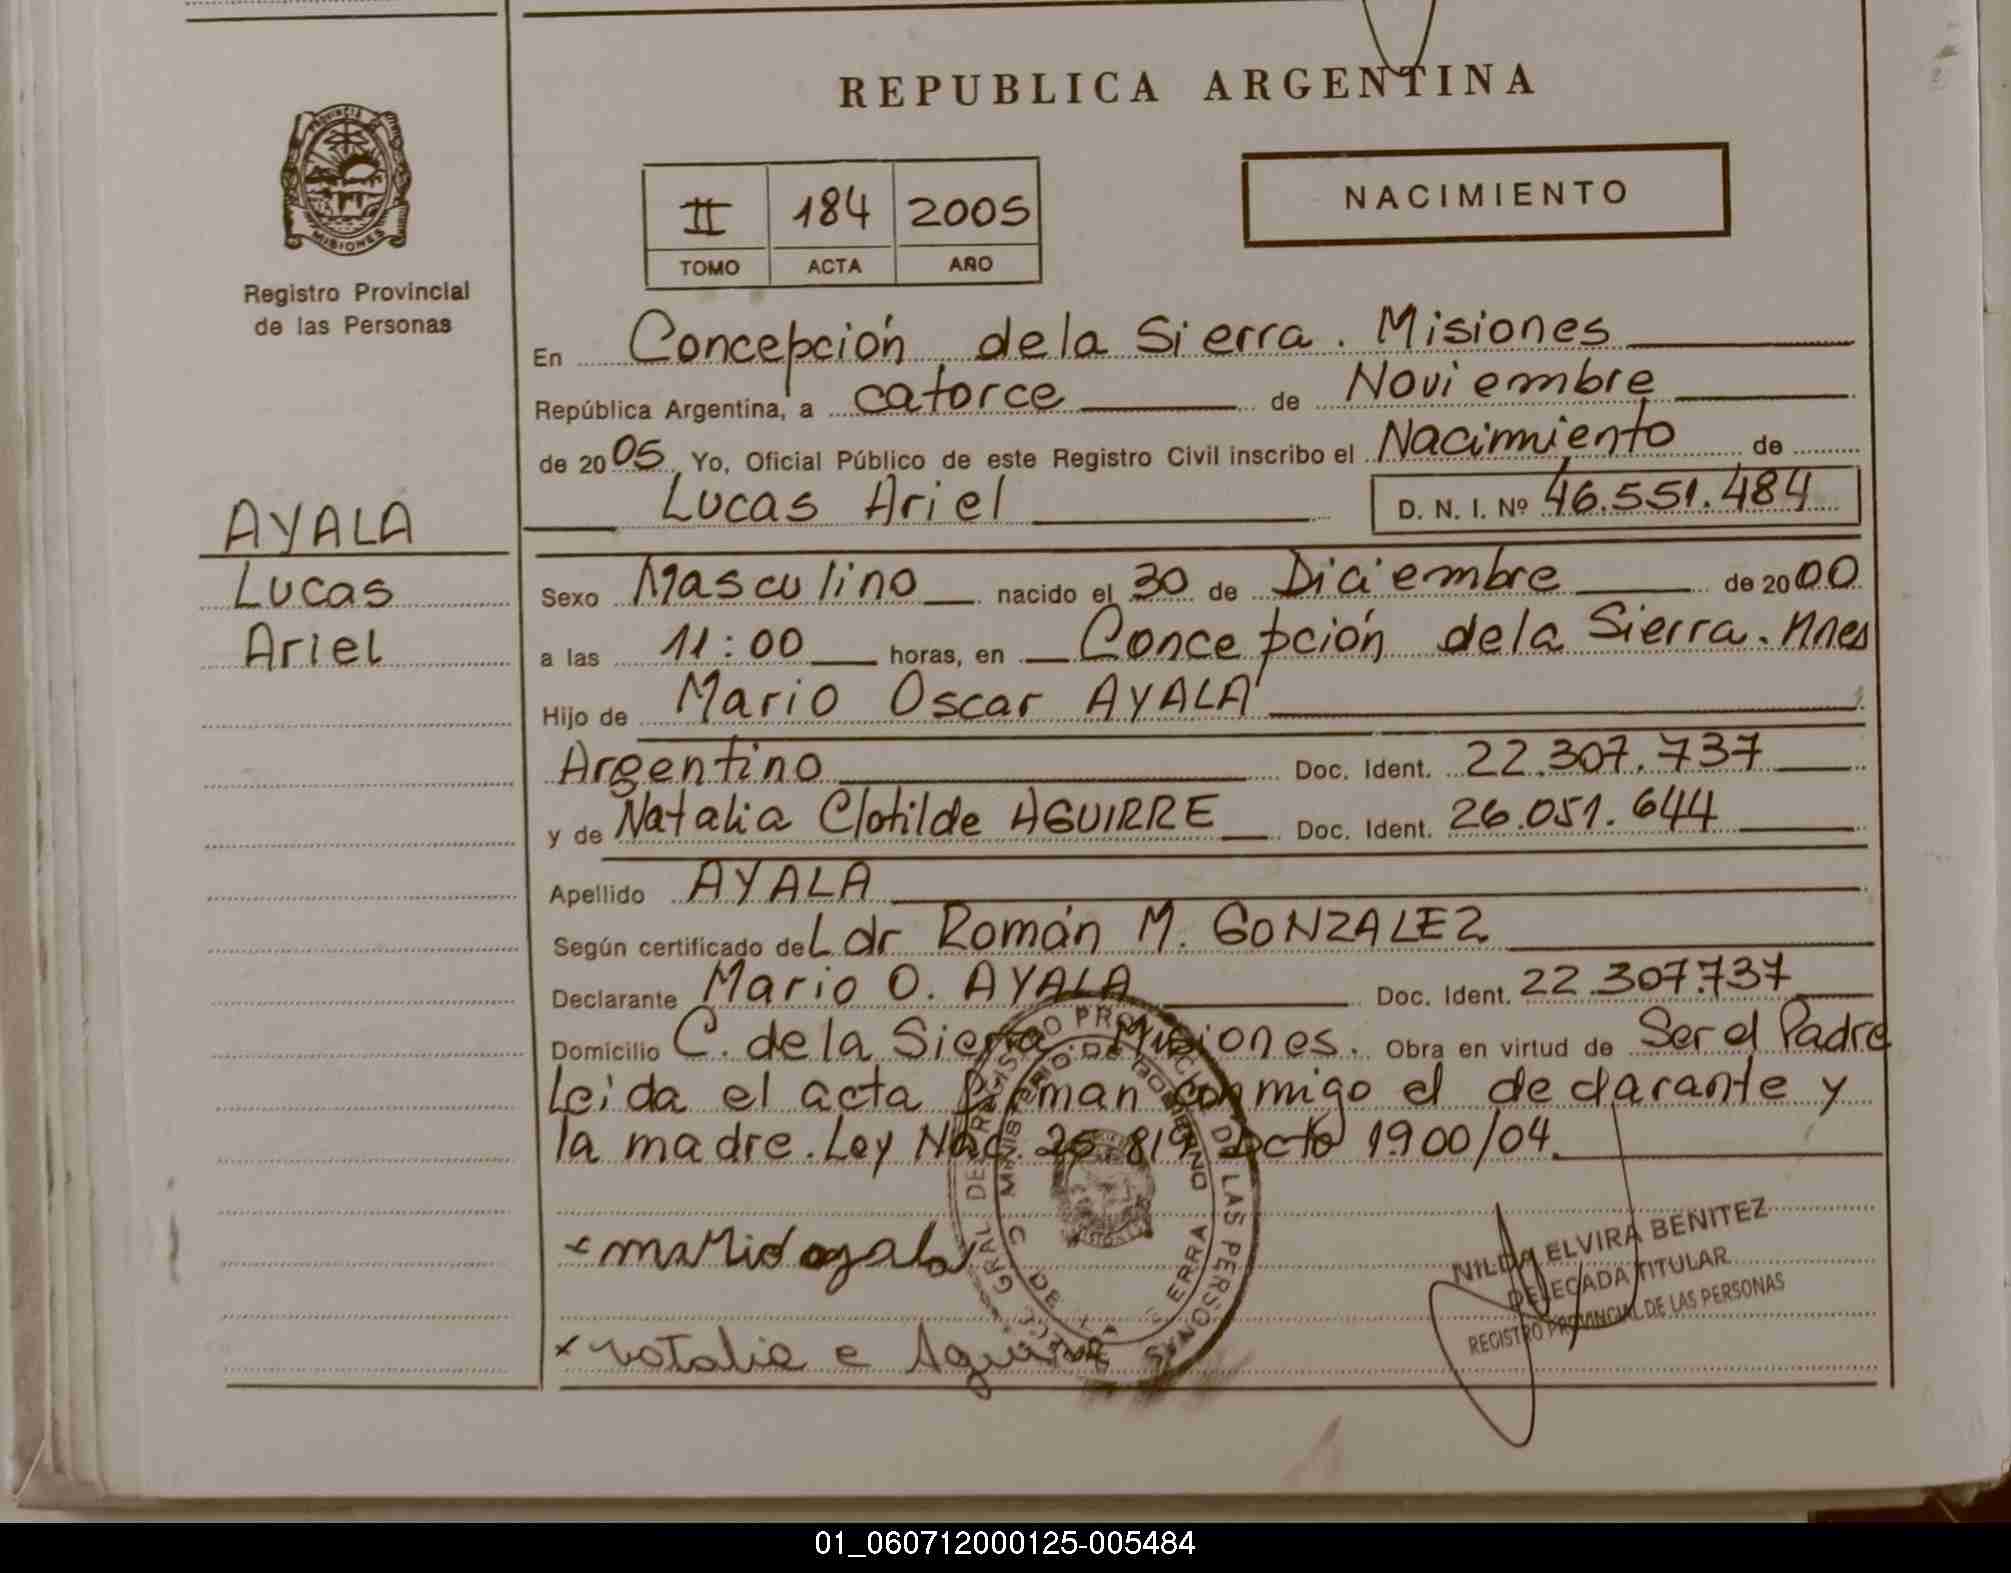 REPUBLICA ARGENTINA
PROVINCIA DE
MISIONES
Registro Provincial
de las Personas
II 184 2005
TOMO ACTA AÑO
NACIMIENTO
En Concepción de la Sierra. Misiones
República Argentina, a catorce de Noviembre
de 2005 Yo, Oficial Público de este Registro Civil inscribo el Nacimiento de
Lucas Ariel D. N. I. Nº 46.551.484
AYALA
Lucas
Ariel
Sexo Masculino nacido el 30 de Diciembre de 2000
a las 11:00 horas, en Concepción de la Sierra. Mnes
Hijo de Mario Oscar AYALA
Argentino Doc. Ident. 22.307.737
y de Natalia Clotilde AGUIRRE Doc. Ident. 26.051.644
Apellido AYALA
Según certificado de Ldr Román M. GONZALEZ
Declarante Mario O. AYALA Doc. Ident. 22.307.737
Domicilio C. de la Sierra Misiones. Obra en virtud de Ser el Padre
Leida el acta firman conmigo el declarante y
la madre. Ley Nac. 25.819 Dcto 1900/04.
x mario ayala
x natalia e Aguirre
REGISTRO PROVINCIAL DE LAS PERSONAS
MINISTERIO DE GOBIERNO
NILDA ELVIRA BENITEZ
DELEGADA TITULAR
REGISTRO PROVINCIAL DE LAS PERSONAS
01_060712000125-005484